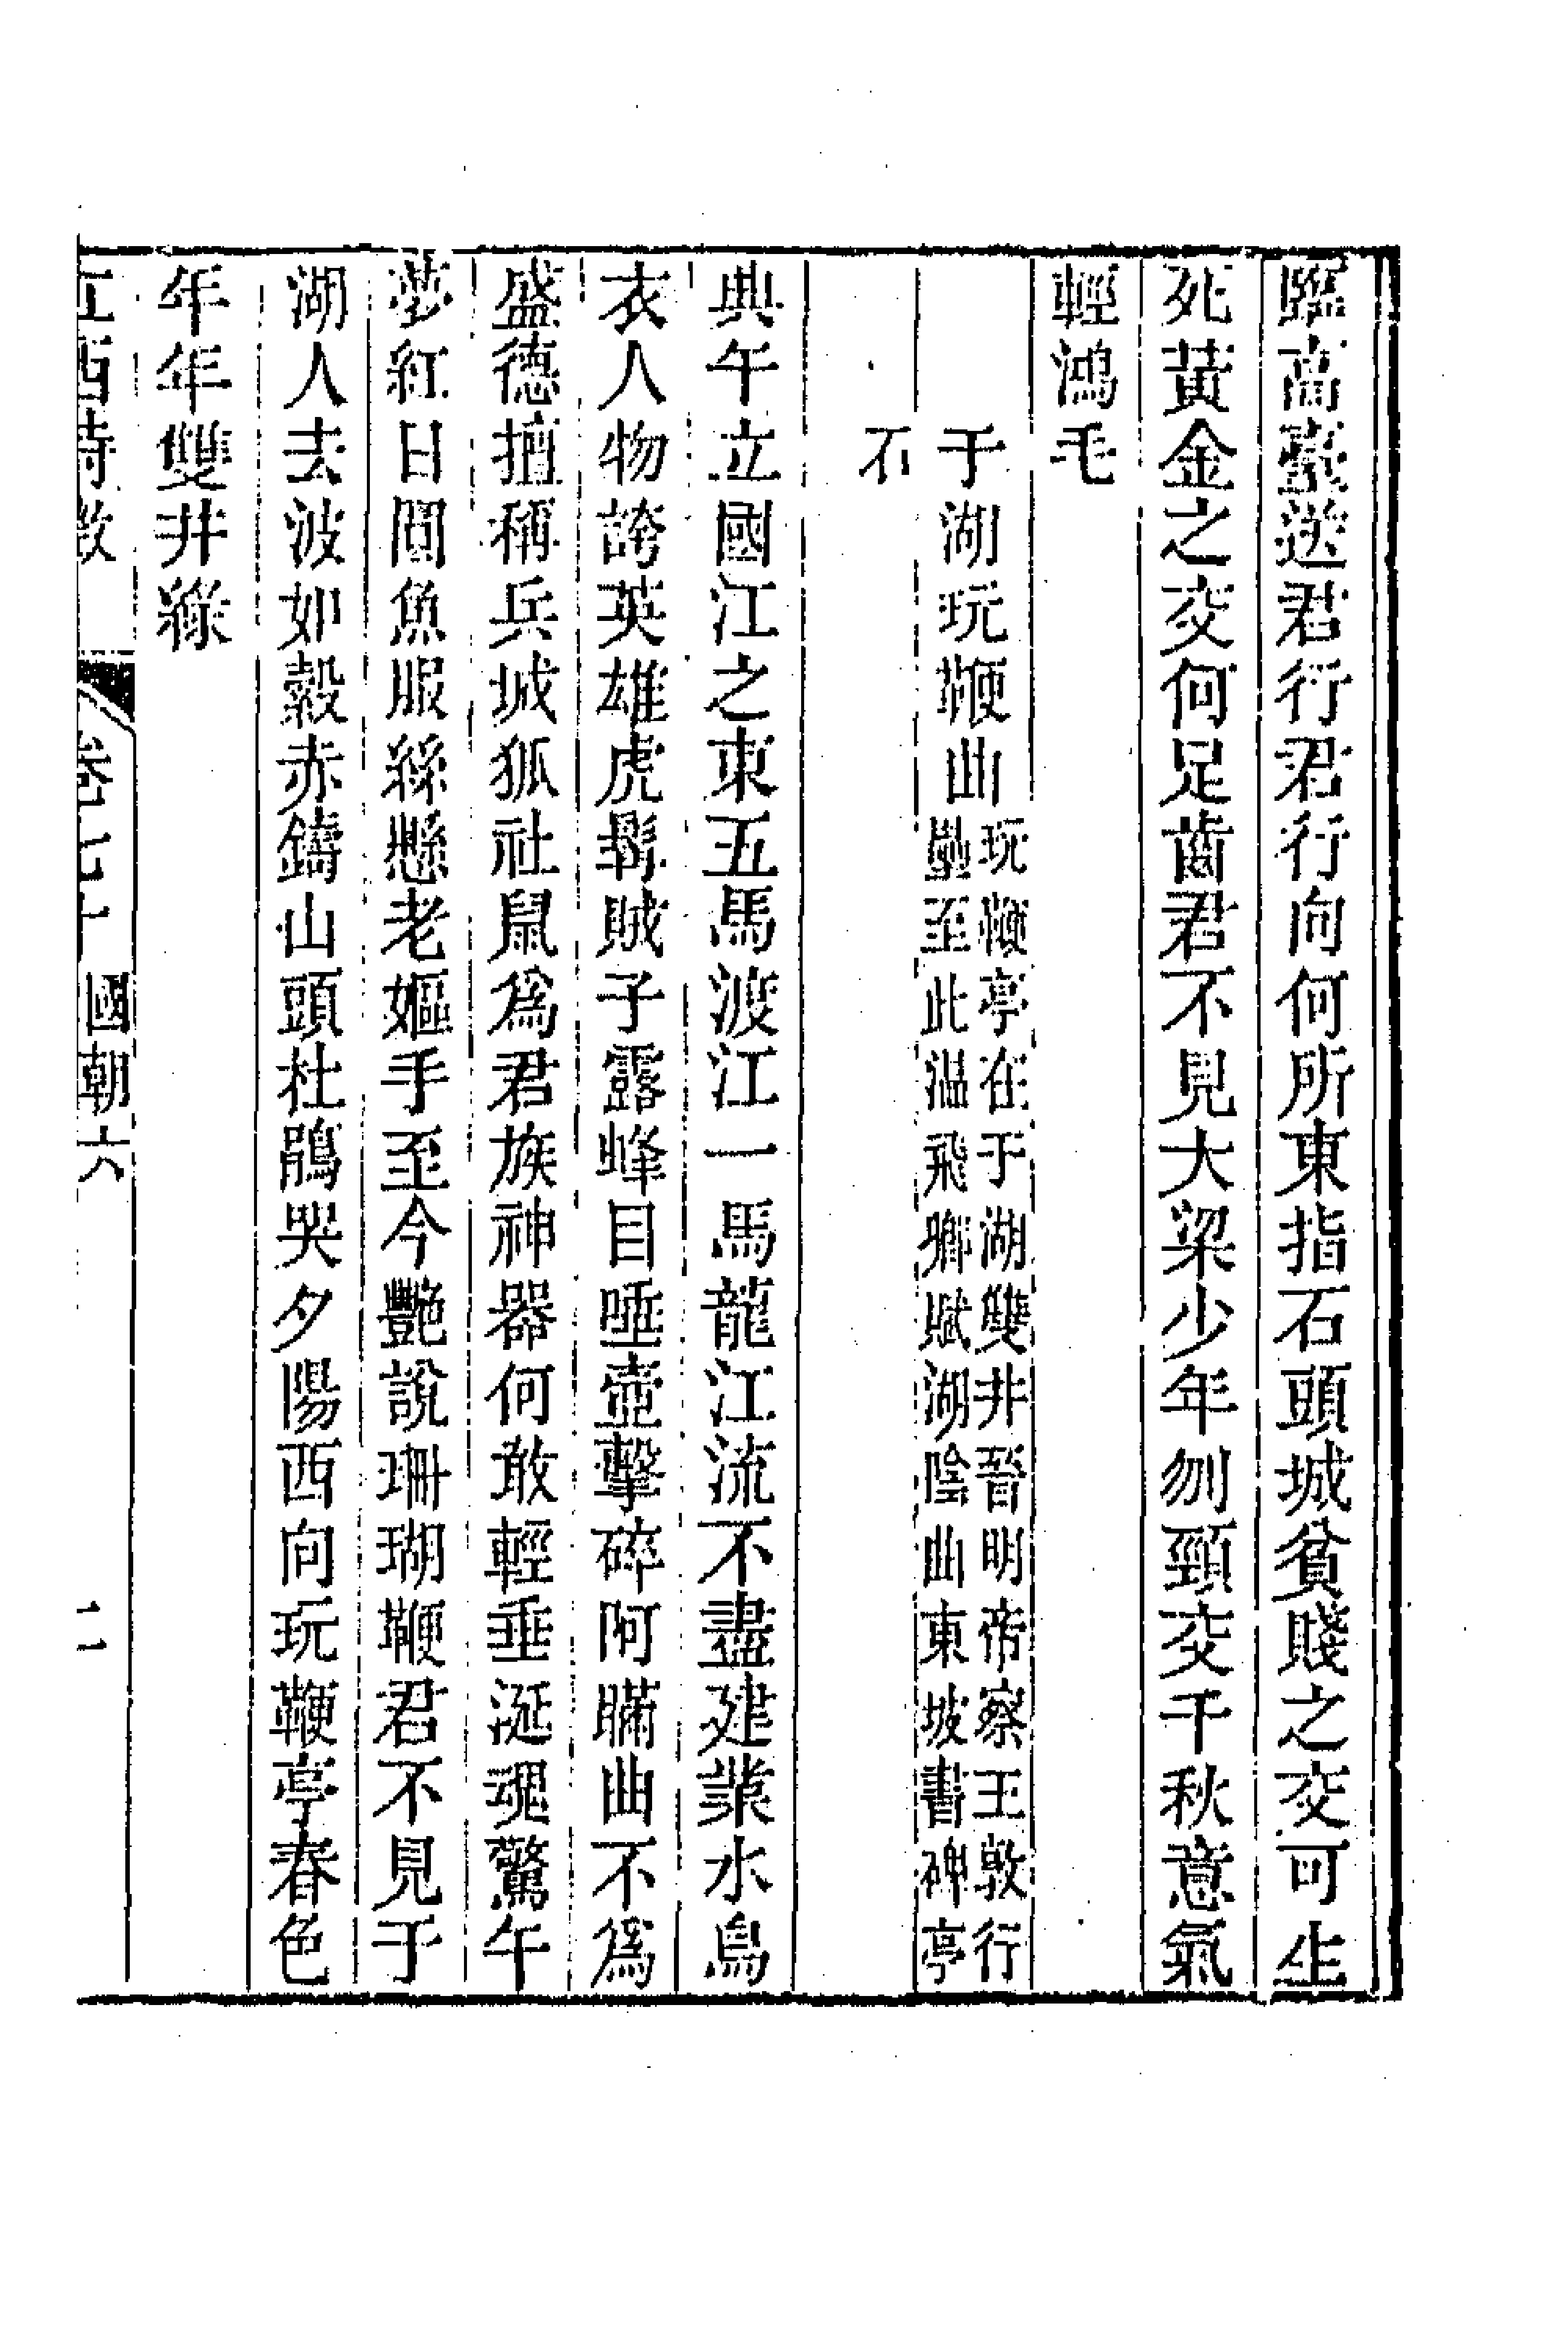 臨高臺送君行君行向何所東指石頭城貧賤之交可生
死黃金之交何足齒君不見大梁少年刎頸交千秋意氣
輕鴻毛
于湖玩鞭曲玩鞭亭在于湖雙井晉明帝察王敦行
壘至此溫飛卿賦湖陰曲東坡書碑亭
石
典午立國江之東五馬渡江一馬龍江流不盡建業水烏
衣人物誇英雄虎鬚賊子露蜂目唾壺擊碎阿瞞曲不爲
盛德擅稱兵城狐社鼠爲君族神器何敢輕垂涎魂驚午
夢紅日圓魚服絲懸老嫗手至今艷說珊瑚鞭君不見于
湖人去波如縠赤鑄山頭杜鵑哭夕陽西向玩鞭亭春色
年年雙井綠
江西詩徵 卷七十 國朝六 二